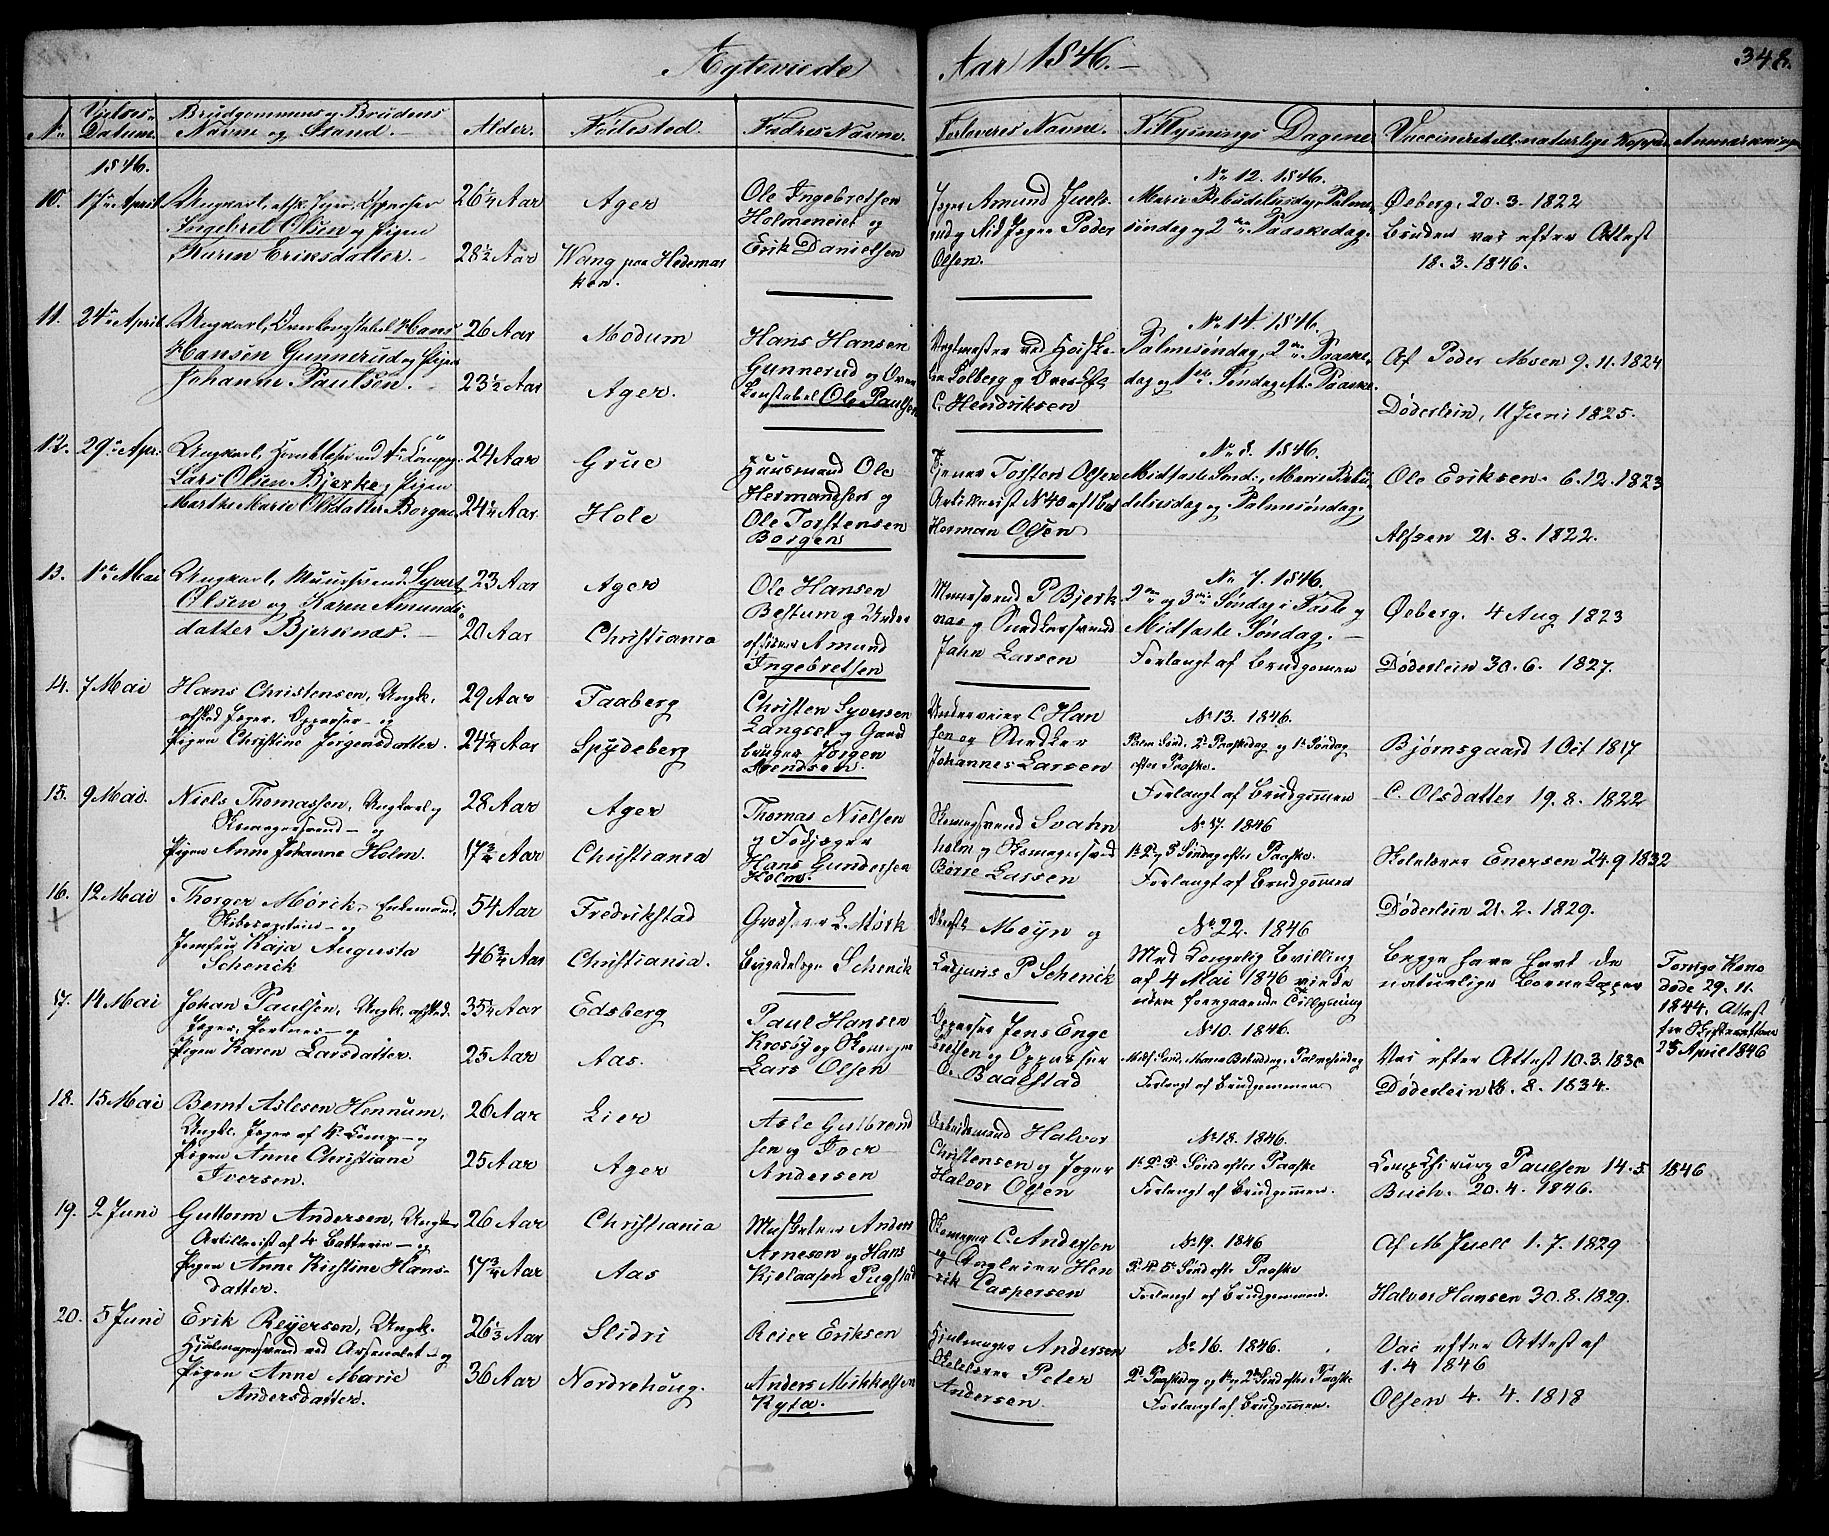 Ægteviede Aar 1846.
348.
No
Vielses-Datum.
Brudgommens og Brudens Navne og Stand.
Alder.
Fødested.
Fædres Navne.
Forloveres Navne.
Tillysnings Dagene
Vaccineret ell. naturlige Kopper
Anmærkninger
1846.
10. 17de April
Ungkarl, afsk. Jæger, Opasser
Ingebret Olsen og Pigen
Karen Eriksdatter.
26¼ Aar
28½ Aar
Ager
Wang paa Hedemarken.
Ole Ingebretsen
Holmeneiet og
Erik Danielsen
Jæger Amund Juels-
rud og Nid Jæger Peder
Olsen.
No 12. 1846.
Mariæ Bebudelsesdag, Palme-
søndag og 2den Paaskedag.
Øeberg. 20.3.1822
Bruden var efter Attest
18.3.1846.
11. 24de April
Ungkarl, Overkonstabel Hans
Hansen Gunnerud og Pigen
Johanne Paulsen.
26 Aar
23½ Aar
Modum
Ager.
Hans Hansen
Gunnerud og Over-
konstabel Ole Paulsen
Solberg
C. Hendriksen
No 14. 1846.
Palmesøndag, 2den Paaske-
dag og 1ste Søndag eft. Paaske.
Af Peder Moen 9.11.1824
Døderlein, 11 Juni 1825.
12. 29de Apr.
Ungkarl, Hornblæser ved 4de Comp.
Lars Olsen Bjerke og Pigen
Marthe Marie Olsdatter Borgen
24 Aar
24¼ Aar
Grue
Hole
Huusmand Ole
Hermandsen og
Ole Torstensen
Borgen
Tjener Torsten Olsen
Artillerist No 40 af 1 Bat
Herman Olsen
No 8. 1846.
Midfaste Sønd., Mariæ Bebu-
delsesdag og Palmesøndag.
Ole Eriksen 6.12.1823
Alfsen 21.8.1822.
13. 1ste Mai
Ungkarl, Muursvend Syvert
Olsen og Karen Amunds-
datter Bjerknæs.
23 Aar
20 Aar
Ager
Christiania
Ole Hansen
Bestum og Under
officier Amund
Ingebretsen
Muursvend P. Bjerk-
næs og Snedkersvend
Jahn Larsen
No 7. 1846.
2den og 3die Søndag i Faste og
Midfaste Søndag.
Forlangt af Brudgommen
Øeberg. 4 Aug 1823
Døderlein 30.6.1827.
14. 7 Mai
Hans Christensen, Ungk.
afsked Jæger, Opasser og
Pigen Christine Jørgensdatter.
29 Aar
24¼ Aar
Faaberg
Spydeberg
Christen Syversen
Langset og Gaard
bruger Jørgen
Arendsen.
Underveier C. Han
sen og Snedker
Johannes Larsen
No 13. 1846.
Palme Sønd. 2. Paaskedag og 1. Søndag
efter Paaske.
Forlangt af Brudgommen
Bjørnsgaard 1 Oct 1817
C. Olsdatter 19.8.1822
15. 9 Mai.
Niels Thomassen, Ungkarl og
Skomagersvend og
Pigen Anne Johanne Holm.
28 Aar
17¾ Aar
Ager
Christiania
Thomas Nielsen
og Fodjæger
Hans Gundersen
Holm.
Skomagersvend Svahn
holm og Skomagersvend
Børre Larsen
No 17. 1846
1. 2. og 3. Søndag efter Paaske.
Forlangt af Brudgommen
Skolelærer Enersen 24.9.1832
Døderlein 21.2.1829.
16. 12 Mai
Thorger Mørck, Enkemand,
Skibscapitain og
Jomfru Kaja Augusta
Schenck
54 Aar
46¾ Aar
Fredrikstad
Christiania.
Grosserer L. Mørk
Brigadelæge Schenck
Meyn og
P. Schenck
No 22. 1846
Med Kongelig Bevilling
af 4 Mai 1846 viede
uden foregaaende Tillysning
Begge have havt de
naturlige Børnekopper
Forrige Kone
døde 29.11.
1844. Attest
fra Skifteretten
25 April 1846
17. 14 Mai
Johan Paulsen, Ungk. afsked.
Jæger, og
Pigen Karen Larsdatter.
35¼ Aar
25 Aar
Edsberg
Aas.
Paul Hansen
Krosby og Skomager
Lars Olsen
Opasser Jens Enge
bretsen og Opasser
O. Baalstad
No 10. 1846.
Midf. Sønd. Mariæ Bebudag. Palmesøndag
Forlangt af Brudgommen
Var efter Attest 10.3.1830
Døderlein 18.8.1834.
18. 15 Mai
Bernt Aslesen Hennum,
Ungk. Jæger af Comp. og
Pigen Anne Christiane
Iversen.
26 Aar
25 Aar
Lier
Ager
Asle Gulbrand
sen og Iver
Andersen
Arbeidsmand Halvor
Christensen og Jæger
Halvor Olsen
No 18. 1846.
1. 2. 3. Sønd efter Paaske
Forlangt af Brudgommen.
Comp. Chirurg Paulsen 14.5 1846
Buch. 20.4.1846.
19. 2 Juni
Guttorm Andersen, Ungk.
Artillerist af 4 Batterie og
Pigen Anne Kirstine Hans-
datter.
26 Aar
17¾ Aar
Christiania
Aas
Musketeer Anders
Arnesen og Hans
Kjelaasen Pugstad
Skomager C. Andersen
og Hen
rik Caspersen
No 19. 1846
3. 4. 5. Sønd efter Paaske
Forlangt af Brudgommen.
Af M Juell 1.7.1829
Halvor Hansen 30.8.1829.
20. 5 Juni
Erik Reyersen, Ungk.
Hjulmagersvend ved Arsenalet og
Pigen Anne Marie
Andersdatter.
26⅓ Aar
36 Aar
Slidri
Nordrehoug.
Reier Eriksen
Anders Mikkelsen
Kyta.
Hjulmager Andersen
Skolelærer Peter
Andersen
No 16. 1846.
2. Paaskedag og 1. og 2. Sønd efter Paaske
Forlangt af Brudgommen.
Var efter Attest af
1.4 1846
Olsen 4.4.1818